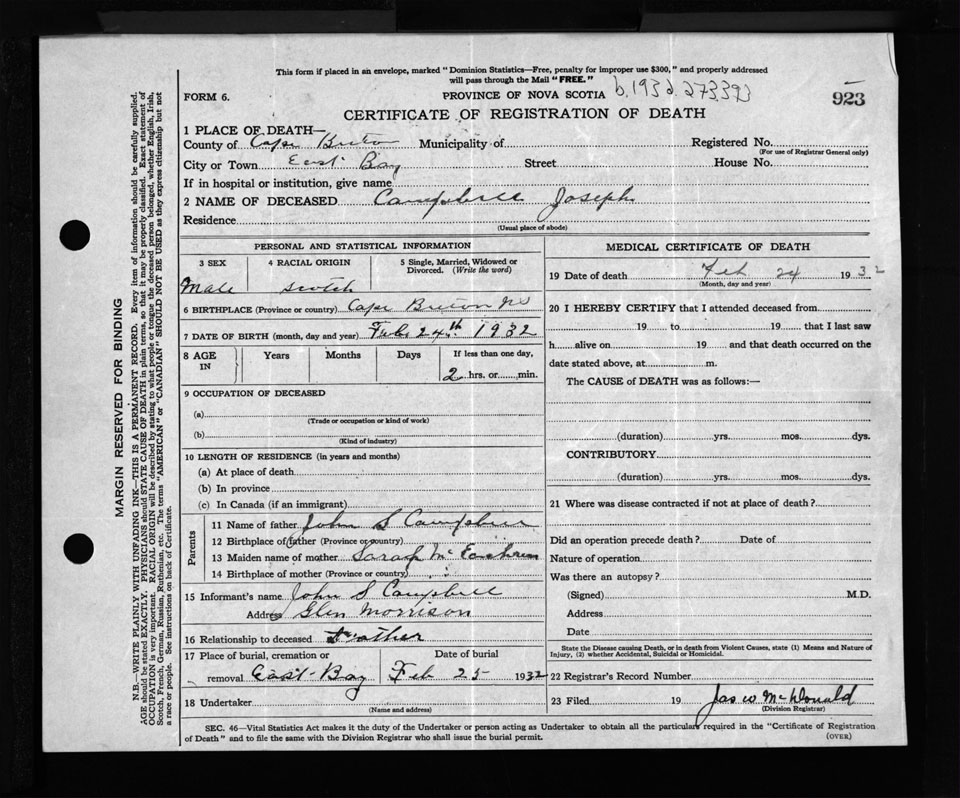 This form if placed in an envelope, marked "Dominion Statistics—Free, penalty for improper use $300," and properly addressed
will pass through the Mail "FREE."
FORM 6. PROVINCE OF NOVA SCOTIA b.1932.273393 923
CERTIFICATE OF REGISTRATION OF DEATH
1 PLACE OF DEATH—
County of Cape Breton Municipality of Registered No.
(For use of Registrar General only)
City or Town East Bay Street House No.
If in hospital or institution, give name
2 NAME OF DECEASED Campbell Joseph
Residence
(Usual place of abode)
PERSONAL AND STATISTICAL INFORMATION
3 SEX 4 RACIAL ORIGIN 5 Single, Married, Widowed or
Divorced. (Write the word)
Male Scotch
6 BIRTHPLACE (Province or country) Cape Breton NS
7 DATE OF BIRTH (month, day and year) Feb. 24th 1932
8 AGE IN Years Months Days If less than one day,
2 hrs. or min.
9 OCCUPATION OF DECEASED
(a)
(Trade or occupation or kind of work)
(b)
(Kind of industry)
10 LENGTH OF RESIDENCE (in years and months)
(a) At place of death
(b) In province
(c) In Canada (if an immigrant)
Parents
11 Name of father John S Campbell
12 Birthplace of father (Province or country)
13 Maiden name of mother Sarah McEachern
14 Birthplace of mother (Province or country)
15 Informant's name John S Campbell
Address Glen Morrison
16 Relationship to deceased Father
17 Place of burial, cremation or Date of burial
removal East Bay Feb 25 1932
18 Undertaker
(Name and address)
MEDICAL CERTIFICATE OF DEATH
19 Date of death Feb 24 1932
(Month, day and year)
20 I HEREBY CERTIFY that I attended deceased from
19 to 19 that I last saw
h alive on 19 and that death occurred on the
date stated above, at m.
The CAUSE of DEATH was as follows:—
(duration) yrs. mos. dys.
CONTRIBUTORY
(duration) yrs. mos. dys.
21 Where was disease contracted if not at place of death?
Did an operation precede death? Date of
Nature of operation
Was there an autopsy?
(Signed) M.D.
Address
Date
State the Disease causing Death, or in death from Violent Causes, state (1) Means and Nature of
Injury, (2) whether Accidental, Suicidal or Homicidal.
22 Registrar's Record Number
23 Filed 19 Jas W McDonald
(Division Registrar)
SEC. 46—Vital Statistics Act makes it the duty of the Undertaker or person acting as Undertaker to obtain all the particulars required in the "Certificate of Registration
of Death" and to file the same with the Division Registrar who shall issue the burial permit.
(OVER)
MARGIN RESERVED FOR BINDING
N.B.—WRITE PLAINLY WITH UNFADING INK—THIS IS A PERMANENT RECORD. Every item of information should be carefully supplied.
AGE should be stated EXACTLY. PHYSICIANS should STATE CAUSE OF DEATH in plain terms, so that it may be properly classified. Exact statement of
OCCUPATION is very important. RACIAL ORIGIN will be described by stating to what people or tongue the deceased person belonged, whether English, Irish,
Scotch, French, German, Russian, Ruthenian, etc. The terms "AMERICAN" or "CANADIAN" SHOULD NOT BE USED as they express citizenship but not
a race or people. See instructions on back of Certificate.